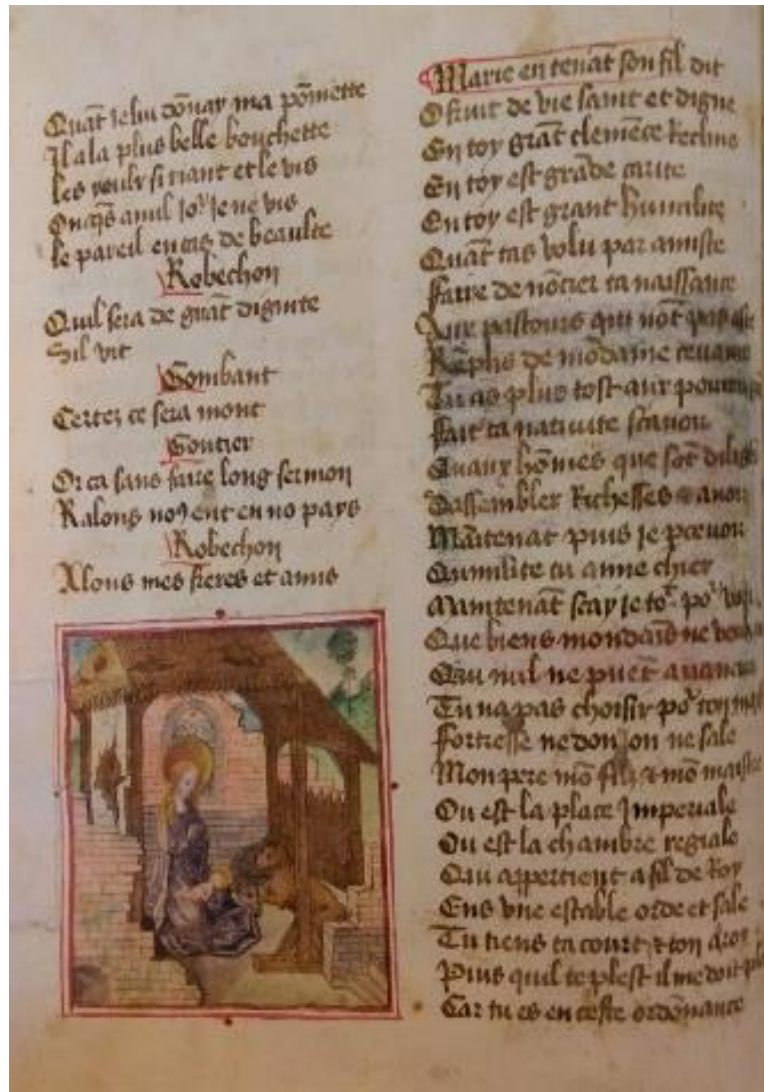 Quāt ie lui dōnay ma pōmette
Il a la plus belle bouchette
Les yeulx si riant et le vis
Onq̄s a nul jor je ne vis
Le pareil en cas de beaulte
Robechon
Quil sera de grāt dignite
Sil vit
Gombaut
Certez ce sera mont
Gontier
Or ca sans faire long sermon
Ralons noꝰ ent en no pays
Robechon
Alons mes freres et amis
Marie en tenāt son fil dit
O fruit de vie saint et digne
En toy grāt clemēce Recline
En toy est grāde carite
En toy est grant humilite
Quāt tas volu par amiste
Faire denōcier ta naissance
Aux pastours qui nōt pas
de mōdaine
Tu as plus tost aux
Fait ta nativite scavoir
Quaux hōmes que sōt
Dassembler Richesses & avoir
Maītenāt puis je pcevoir
Qumilite tu aime chier
Maintenāt scay je to9 po9
Que biens mondaīs ne
Qua nul ne puēt
Tu na pas choisy por toy
Fortresse ne donion ne sale
Mon pere mō filz & mō maistre
Ou est la place Imperiale
Ou est la chambre regiale
Qui appertient a fil de Roy
Ens vne estable orde et sale
Tu tiens ta court & ton
Puis quil te plest il me doit
Car tu es en ceste ordōnance